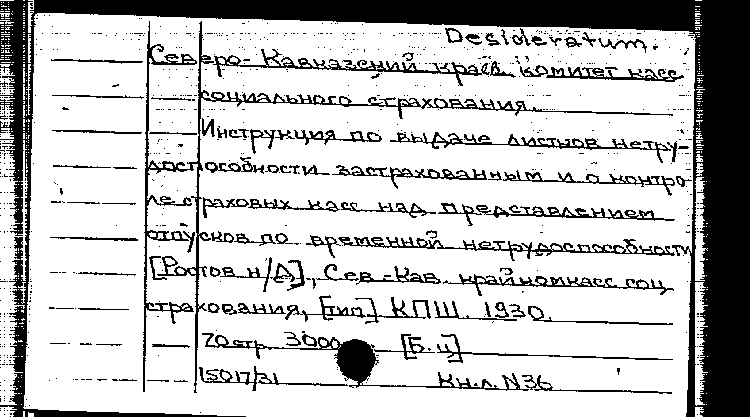 Desideratum.
Северо-Кавказский краев. комитет касс
социального страхования.
Инструкция по выдаче листков нетру-
доспособности застрахованным и о контро
ле страховых касс над представлением
отпусков по временной нетрудоспособности
[Ростов н/Д], Сев-Кав. крайкомкасс соц
страхования, [тип] КПШ. 1930.
20стр. 3000 [Б.ц]
15017/31 Кн.л. N36